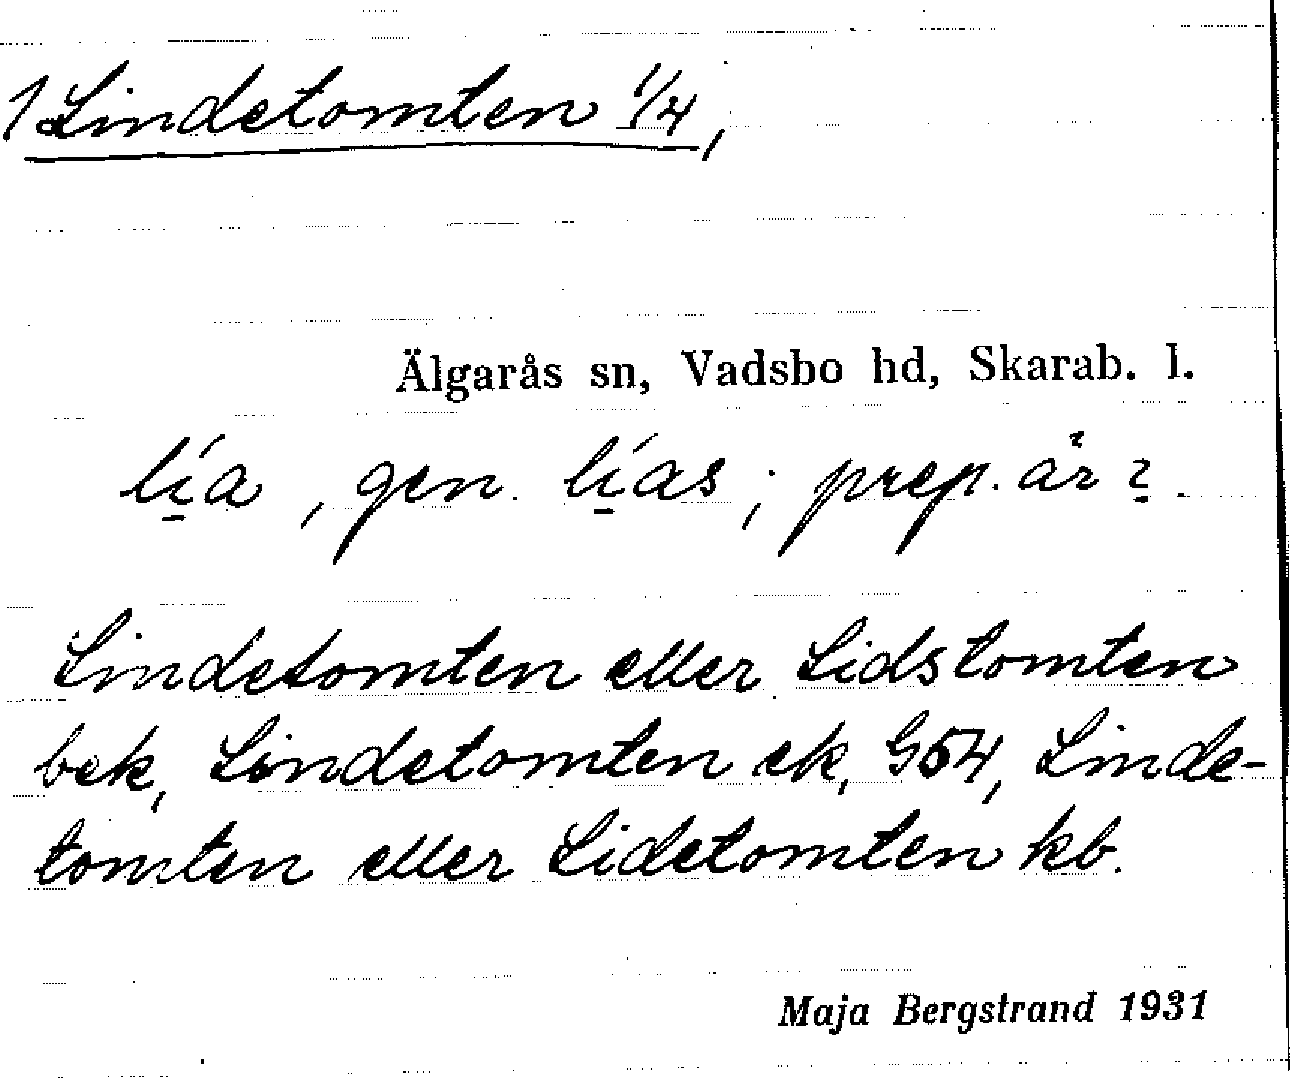 1 Lindetomten 1/4,
Älgarås sn, Vadsbo hd, Skarab. l.
lía, gen. lías; prep.
Lindetomten eller Lidstomten
bek, Lindetomten ek, G54, Linde-
tomten eller Lidetomten kb.
Maja Bergstrand 1931